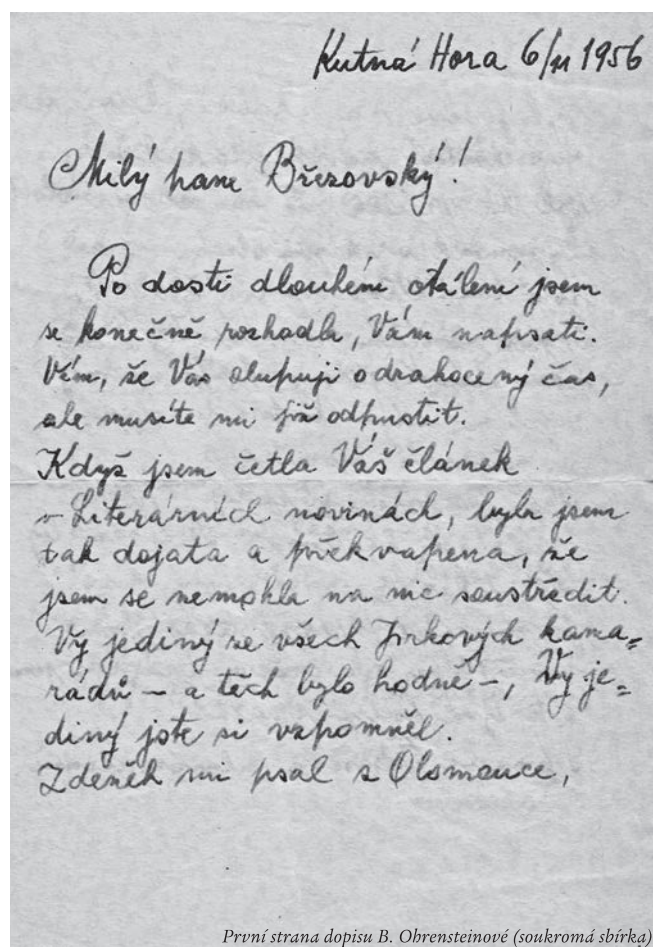 Kutná Hora 6/11 1956
Milý pane Březovský!
Po dosti dlouhém otálení jsem
se konečně rozhodla, Vám napsati.
Vím, že Vás olupuji o drahocený čas,
ale musíte mi již odpustit.
Když jsem četla Váš článek
v Literárních novinách, byla jsem
tak dojata a překvapena, že
jsem se nemohla na nic soustředit.
Vy jediný ze všech Jirkových kama=
rádů – a těch bylo hodně –, Vy je=
diný jste si vzpomněl.
Zdeněk mi psal z Olomouce,
První strana dopisu B. Ohrensteinové (soukromá sbírka)